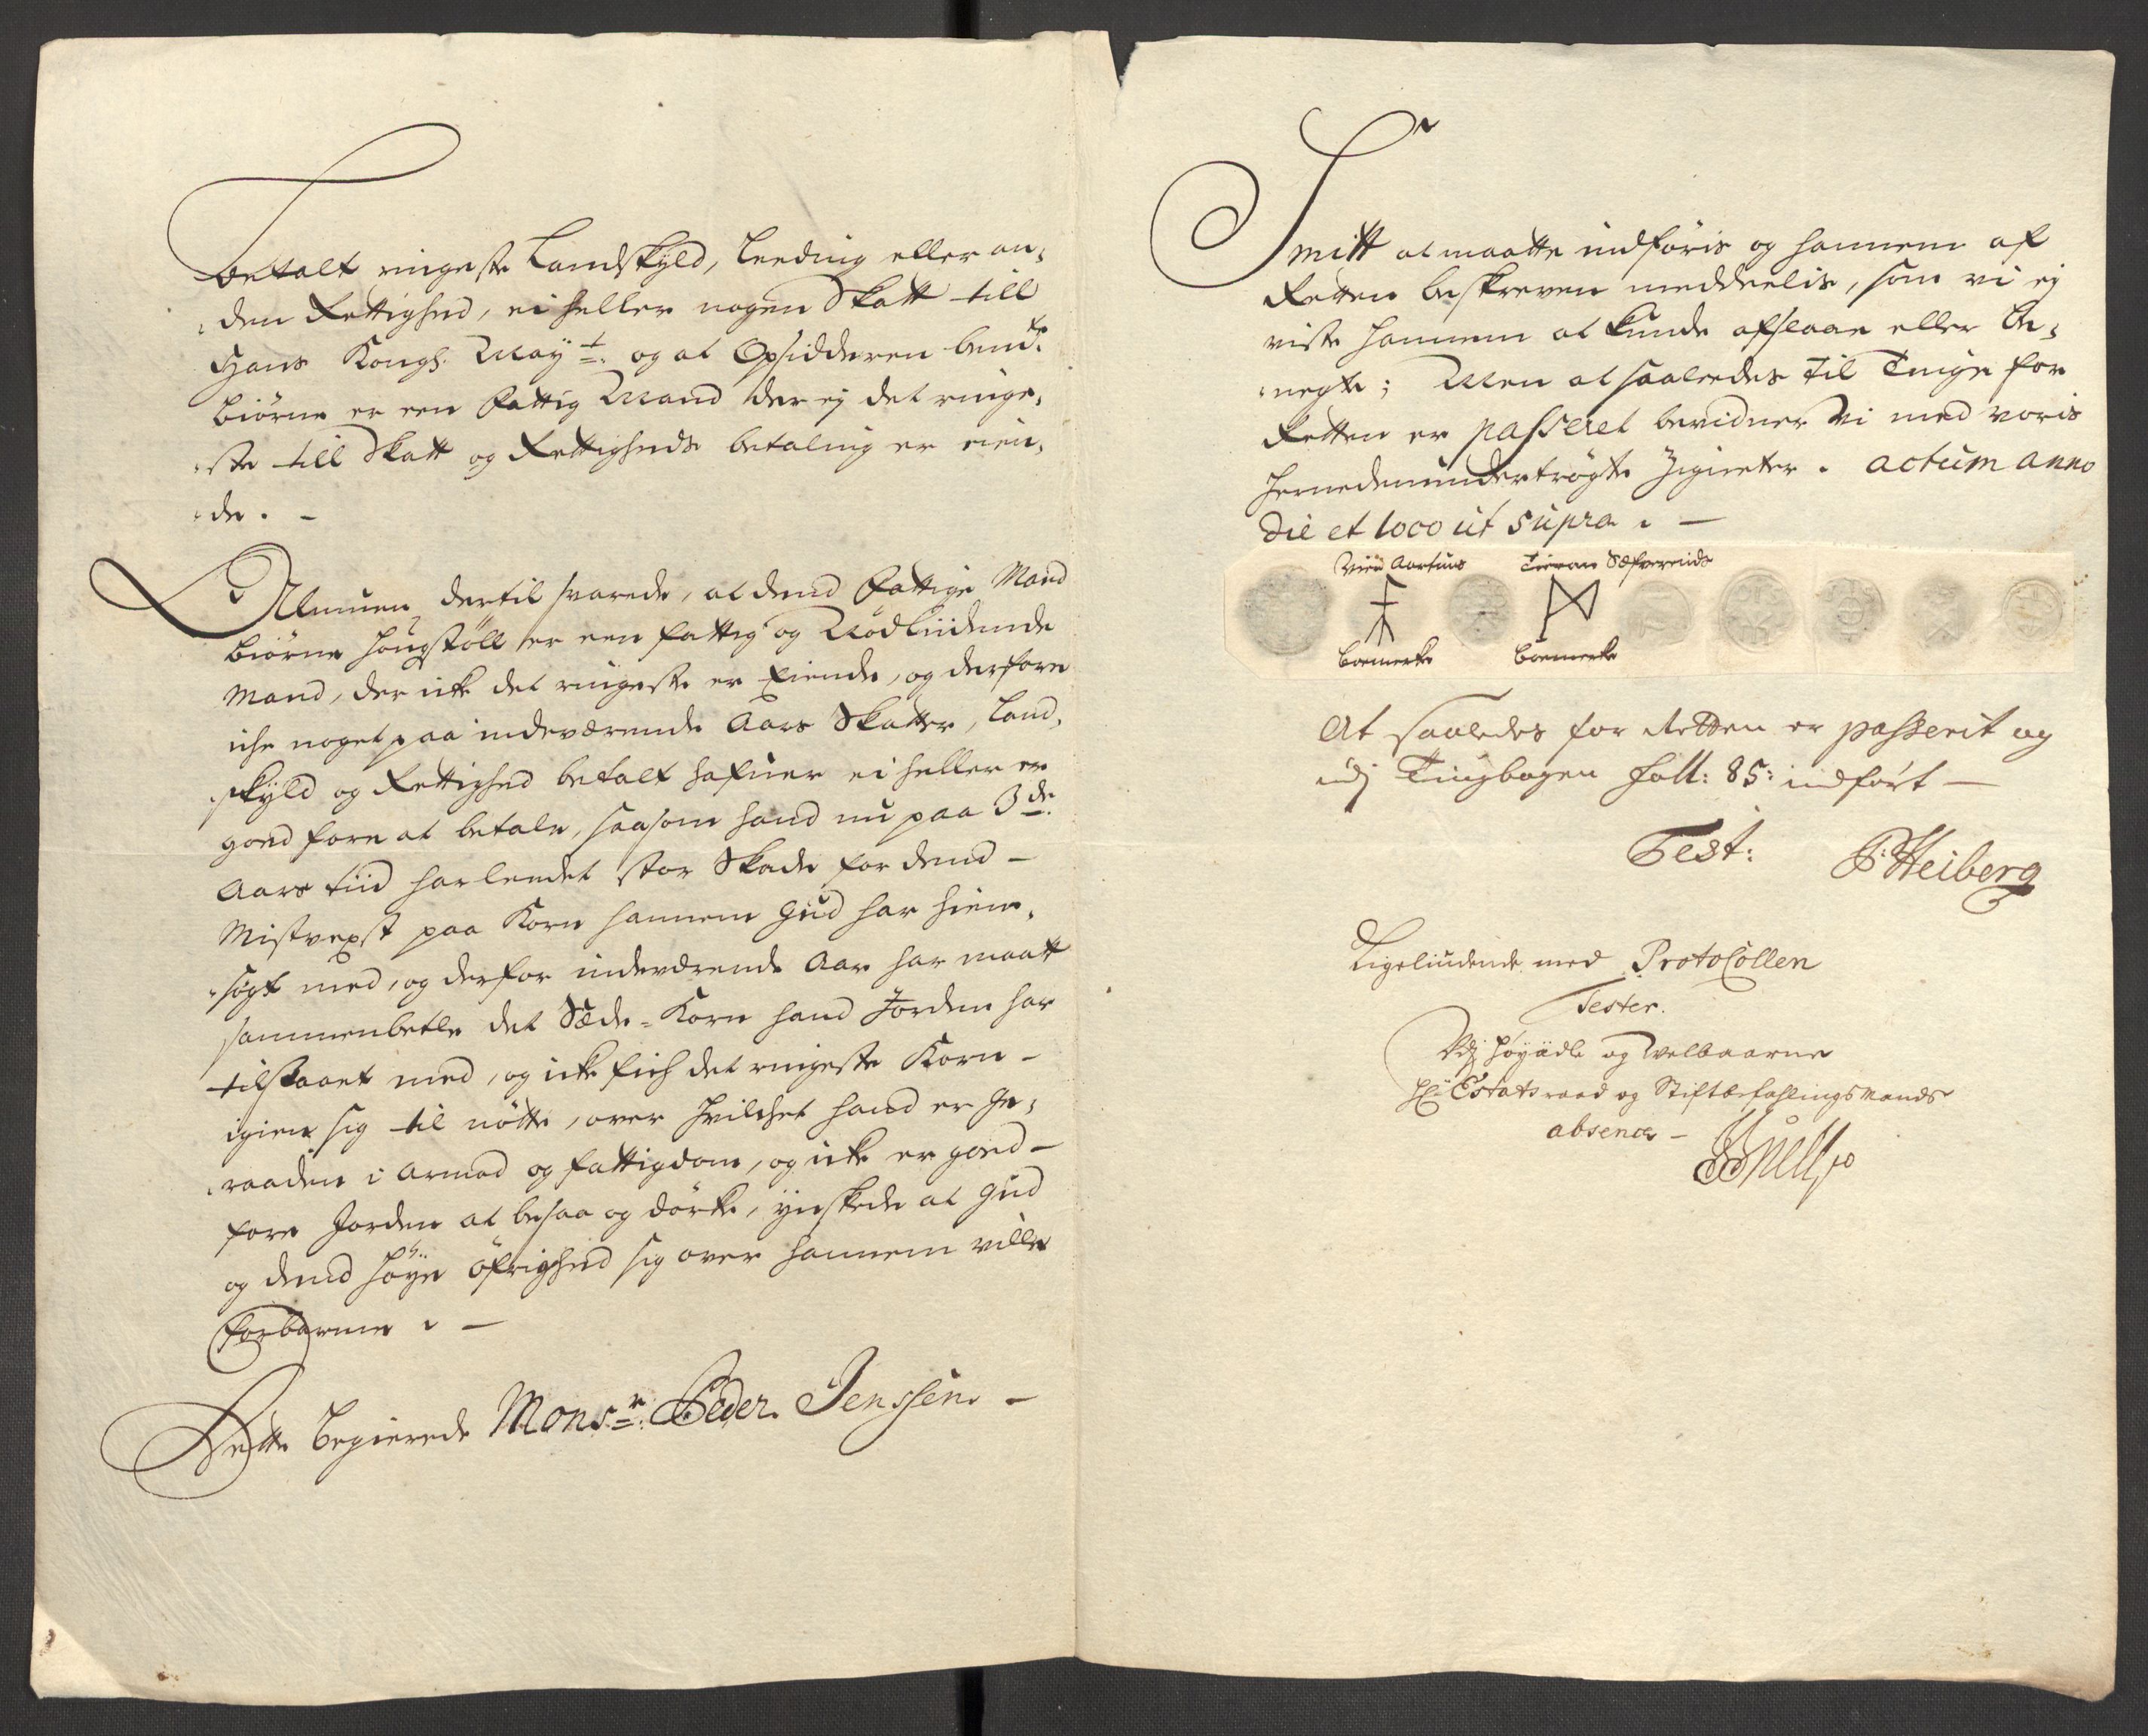 betalt ringeste Landskyld, Leeding eller an,
,den Rettighed, ei heller nogen Skatt till
Hans Kongl. May.t: og at Opsidderen bem.te
Biørne er een Fattig Mand der ej det ringe,
,ste till Skatt og Rettigheds betaling er eien,
,de. -
Almuen dertil svarede, at dend Fattige Mand
Biørne Hougstøll er een fattig og Nødliidende
Mand, der icke det ringeste er Eiende, og derfore
iche noget paa indeværende Aars Skatter, Land,
,skyld og Rettighed betalt hafuer ei heller er
goed fore at betale, saasom hand nu paa 3de.
Aars tiid har lendet stor Skade for dend -
Misvext paa Korn hannem Gud har hiem,
,søgt med, og derfor indeværende Aar har maatt
sammenbetle det Sæde-Korn hand Jorden har
tilsaaet med, og icke fich det ringeste Korn -
igien sig til nøtte, over hvilchet hand er ge,
,raaden i Armod og fattigdom, og icke er goed -
fore Jorden at besaa og dørke, ynskede at Gud
og dend høye Øfrighed sig over hannem ville
forbarme. -
Dette begierede Mons.r Peder Jenssen -
Smitt at maatte indføris og hannem af
Retten beskreven meddeelis, som vi ej
viste hannem at kunde afslaae eller be,
,negte; Men at saaleedes til Tinge for
Retten er passeret bevidner Vi med voris
hernedenundertrøgte Zigneter. actum anno
die et loco ut supra. -
Boemerke Boemerke
At saaledes for Retten er passerit og
udj Tingbogen foll: 85: indført -
Test: P. Heiberg
Ligeliudende med Protocollen
Tester.
Udj Høyædle og Velbaarne
Hr. Estatsraad og Stiftbefahlingsmands
absence -